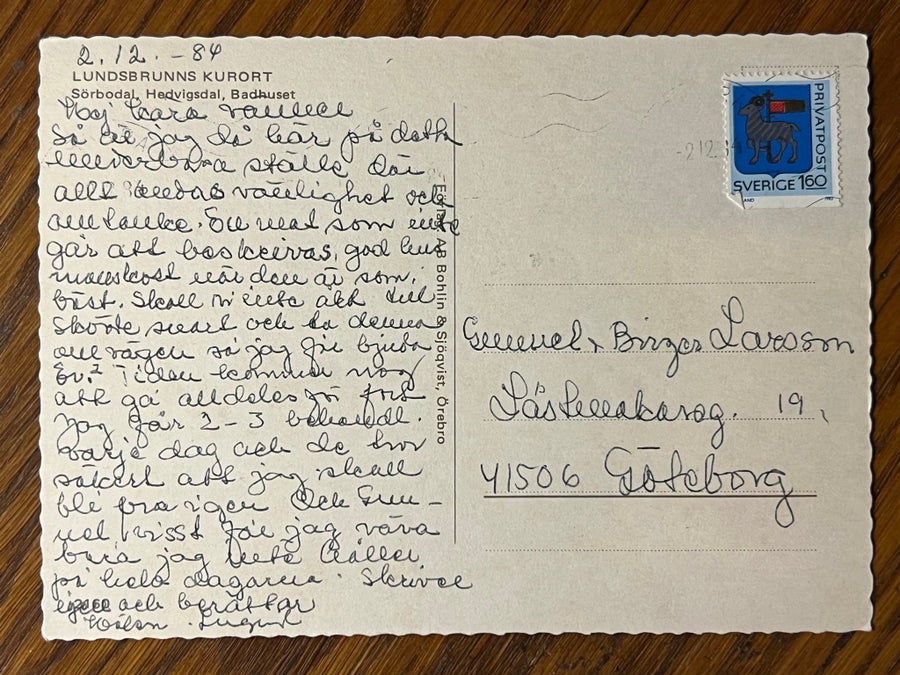 2.12.-84
LUNDSBRUNNS KURORT
Sörbodal, Hedvigsdal, Badhuset
Hej kära vänner
Så är jag då här på detta
underbara ställe där
allt andas vänlighet och
omtanke. En mat som inte
går att beskrivas, god hus
manskost när den är som
bäst. Skall ni inte åka till
Skövde snart och ta denna
omvägen så jag får bjuda
Er? Tiden kommer nog
att gå alldeles för fort
jag får 2-3 behandl.
varje dag och de tror
säkert att jag skall
bli bra igen Och Gun-
nel, visst får jag väva
bara jag inte håller
på hela dagarna. Skriver
igen och berättar
Hälsn.
Förlag: AB Bohlin & Sjöqvist, Örebro
PRIVATPOST
SVERIGE 160
1982
Gunnel, Birger Larsson
Låstmakareg. 19,
41506 Göteborg